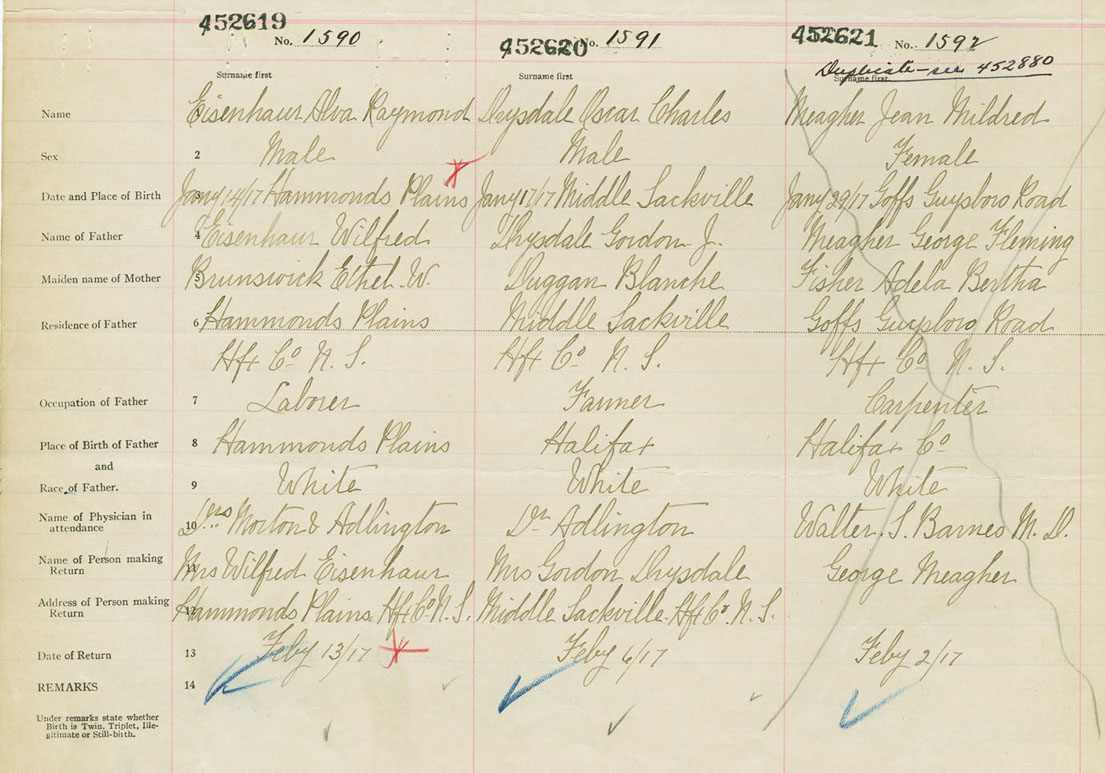 452619
No. 1590
452620
No. 1591
452621
No. 1592
Duplicate – see 452880
Surname first
Surname first
Surname first
Name
Eisenhaur Alva Raymond
Drysdale Oscar Charles
Meagher Jean Mildred
Sex
2
Male
Male
Female
Date and Place of Birth
3
Jany 14/17 Hammonds Plains
Jany 17/17 Middle Sackville
Jany 29/17 Goffs Guysboro Road
Name of Father
4
Eisenhaur Wilfred
Drysdale Gordon J.
Meagher George Fleming
Maiden name of Mother
5
Brunswick Ethel W.
Duggan Blanche
Fisher Adela Bertha
Residence of Father
6
Hammonds Plains
Middle Sackville
Goffs Guysboro Road
Hfx Co N. S.
Hfx Co N. S.
Hfx Co N. S.
Occupation of Father
7
Laborer
Farmer
Carpenter
Place of Birth of Father
8
Hammonds Plains
Halifax
Halifax Co
and
Race of Father.
9
White
White
White
Name of Physician in
attendance
10
Drs Morton & Adlington
Dr Adlington
Walter S. Barnes M. D.
Name of Person making
Return
11
Mrs Wilfred Eisenhaur
Mrs Gordon Drysdale
George Meagher
Address of Person making
Return
12
Hammonds Plains Hfx Co N. S.
Middle Sackville Hfx Co N. S.
Date of Return
13
Feby 13/17
Feby 6/17
Feby 2/17
REMARKS
14
Under remarks state whether
Birth is Twin, Triplet, Ille-
gitimate or Still-birth.